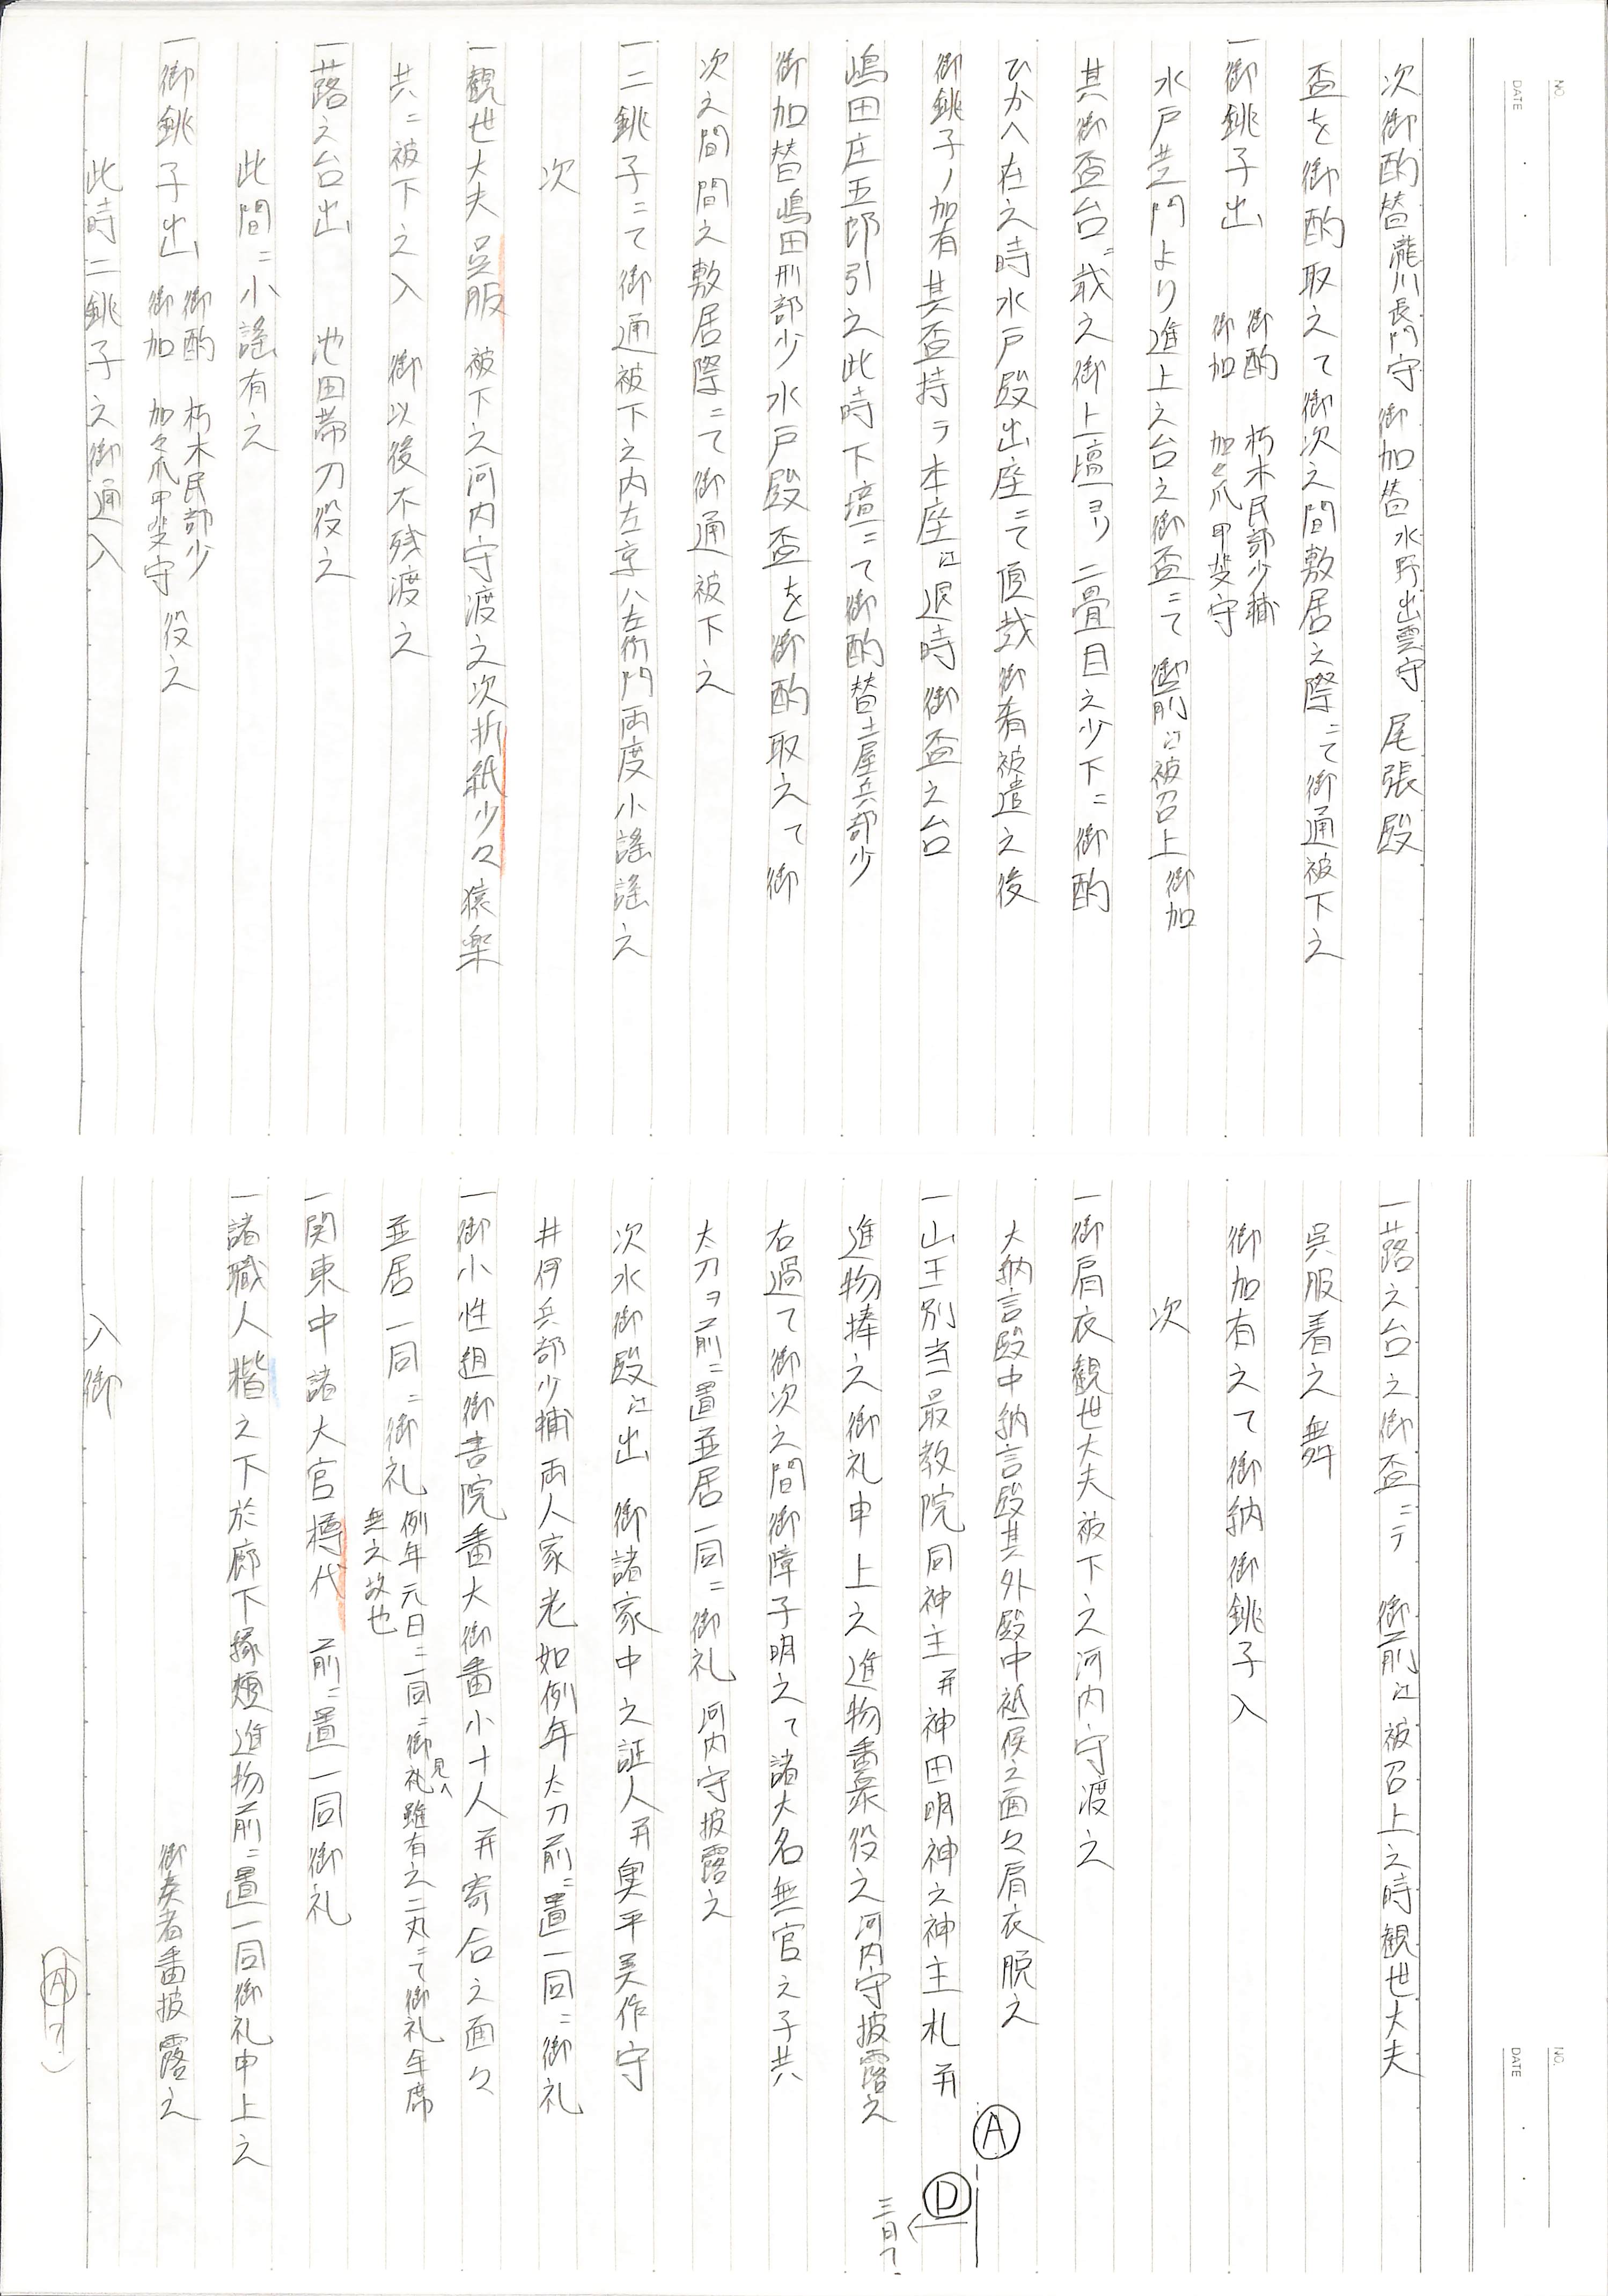 次御酌替瀧川長門守 御加替水野出雲守 尾張殿
盃を御酌取之て御次之間敷居之際ニて御通被下之
一御銚子出 御酌 朽木民部少輔
御加 加々爪甲斐守
水戸黄門より進上之台之御盃ニて 御前江被召上 御加
其御盃台ニ載之御上壇ヨリ二畳目之少下ニ御酌
ひかへ在之時水戸殿出座ニて頂戴御肴被遣之後
御銚子ノ加有其盃持ラ本座江退時御盃之台
嶋田庄五郎引之此時下壇ニて御酌替土屋兵部少
御加替嶋田刑部少水戸殿盃を御酌取之て御
次之間間之敷居際ニて御通被下之
一二銚子ニて御通被下之内左京八左衛門両度小謡謡之
次
一観世大夫呉服被下之河内守渡之次折紙少々猿楽
共ニ被下之入 御以後不残渡之
一蕗之台出 池田帯刀役之
此間ニ小謡有之
一御銚子出 御酌 朽木民部少
御加 加々爪甲斐守 役之
此時二銚子之御通入
一蕗之台之御盃ニテ 御前江被召上之時観世大夫
呉服着之舞
御加有之て御納御銚子入
次
一御肩衣観世大夫被下之河内守渡之
大納言殿中納言殿其外殿中祗候之面々肩衣脱之
Ⓐ
一山王別当最教院同神主并神田明神之神主札并
Ⓓ
三日て
進物捧之御礼申上之進物番衆役之河内守披露之
右過て御次之間御障子明之て諸大名無官之子共
太刀ヲ前ニ置並居一同ニ御礼 河内守披露之
次水御殿江出 御諸家中之証人并奥平美作守
井伊兵部少輔両人家老如例年太刀前ニ置一同ニ御礼
一御小性組御書院番大御番小十人并寄合之面々
並居一同ニ御礼 例年元日ニ一同ニ御礼雖有之二丸ニて御礼年席
見へ
無之故也
一関東中諸大官樽代 前ニ置一同御礼
一諸職人楷之下於廊下掾頬進物前ニ置一同御礼申上之
御奏者番披露之
入御
Ⓐ